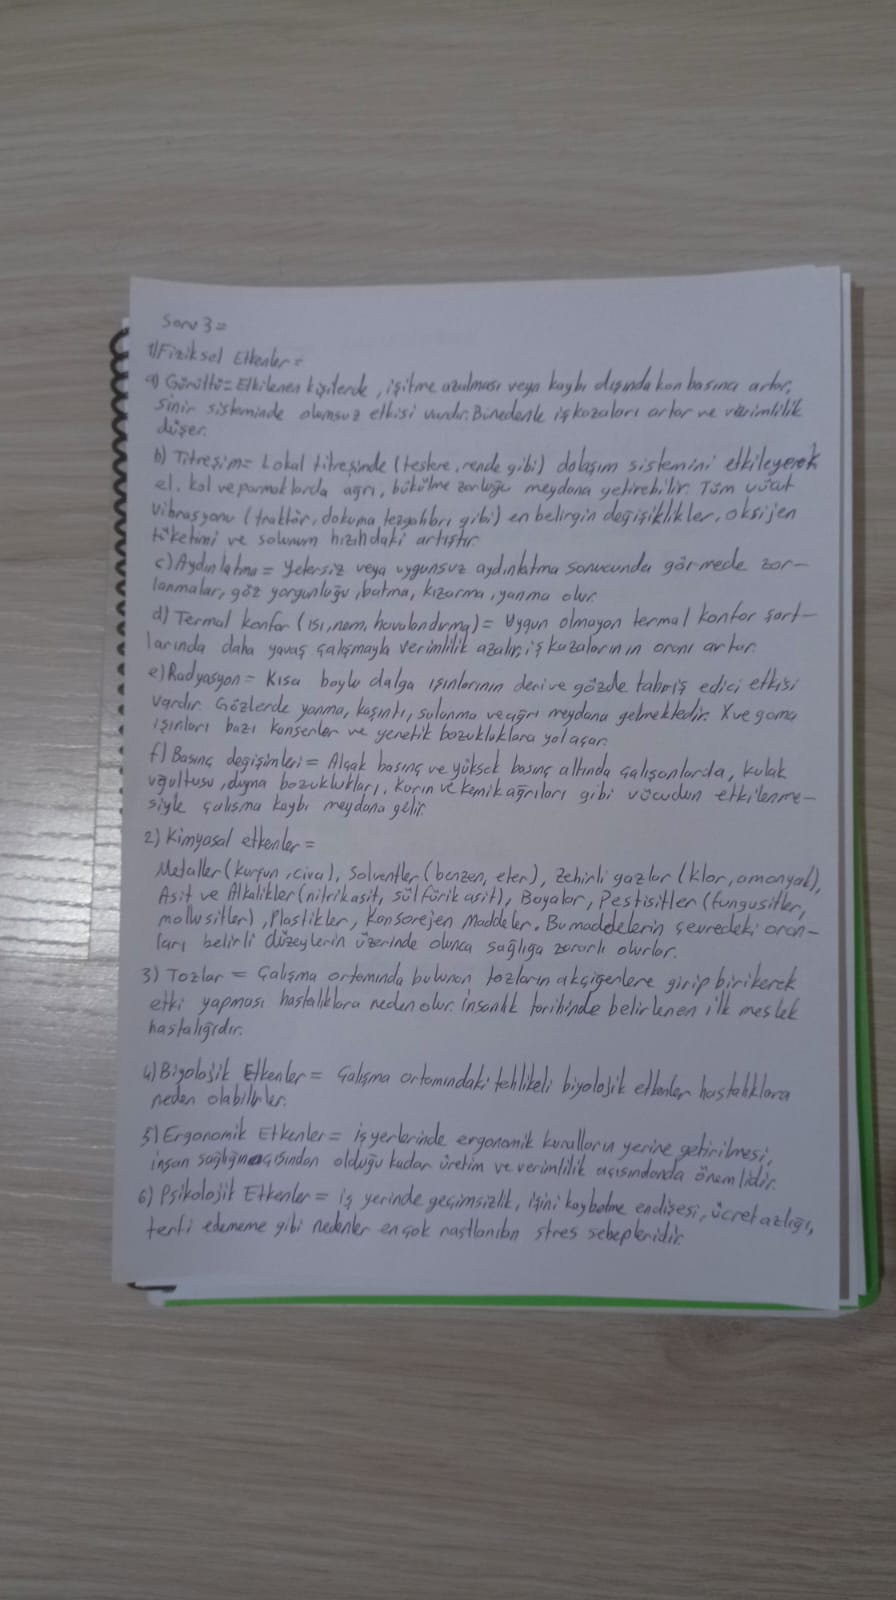 Soru 3=
1) Fiziksel Etkenler=
a) Gürültü= Etkilenen kişilerde, işitme azalması veya kaybı dışında kan basıncı artar,
sinir sisteminde olumsuz etkisi vardır. Bu nedenle iş kazaları artar ve verimlilik
düşer.
b) Titreşim= Lokal titreşinde (testere, rende gibi) dolaşım sistemini etkileyerek
el, kol ve parmaklarda ağrı, bükülme zorluğu meydana getirebilir. Tüm vücut
vibrasyonu (traktör, dokuma tezgahları gibi) en belirgin değişiklikler, oksijen
tüketimi ve solunum hızındaki artıştır.
c) Aydınlatma= Yetersiz veya uygunsuz aydınlatma sonucunda görmede zor-
lanmalar, göz yorgunluğu, batma, kızarma, yanma olur.
d) Termal konfor (ısı, nem, havalandırma)= Uygun olmayan termal konfor şart-
larında daha yavaş çalışmayla verimlilik azalır, iş kazalarının oranı artar.
e) Radyasyon= Kısa boylu dalga ışınlarının deri ve gözde tahriş edici etkisi
vardır. Gözlerde yanma, kaşıntı, sulanma ve ağrı meydana gelmektedir. X ve gama
ışınları bazı kanserler ve genetik bozukluklara yol açar.
f) Basınç değişimleri= Alçak basınç ve yüksek basınç altında çalışanlarda, kulak
uğultusu, duyma bozuklukları, karın ve kemik ağrıları gibi vücudun etkilenme-
siyle çalışma kaybı meydana gelir.
2) Kimyasal etkenler=
Metaller (kurşun, civa), Solventler (benzen, eter), Zehirli gazlar (klor, amonyak),
Asit ve Alkalikler (nitrik asit, sülfürik asit), Boyalar, Pestisitler (fungusitler,
mollusitler), Plastikler, Kanserojen Maddeler. Bu maddelerin çevredeki oran-
ları belirli düzeylerin üzerinde olunca sağlığa zararlı olurlar.
3) Tozlar= Çalışma ortamında bulunan tozların akciğerlere girip birikerek
etki yapması hastalıklara neden olur. İnsanlık tarihinde belirlenen ilk meslek
hastalığıdır.
4) Biyolojik Etkenler= Çalışma ortamındaki tehlikeli biyolojik etkenler hastalıklara
neden olabilirler.
5) Ergonomik Etkenler= iş yerlerinde ergonomik kuralların yerine getirilmesi,
insan sağlığı açısından olduğu kadar üretim ve verimlilik açısından da önemlidir.
6) Psikolojik Etkenler= iş yerinde geçimsizlik, işini kaybetme endişesi, ücret azlığı,
terfi edememe gibi nedenler en çok rastlanılan stres sebepleridir.